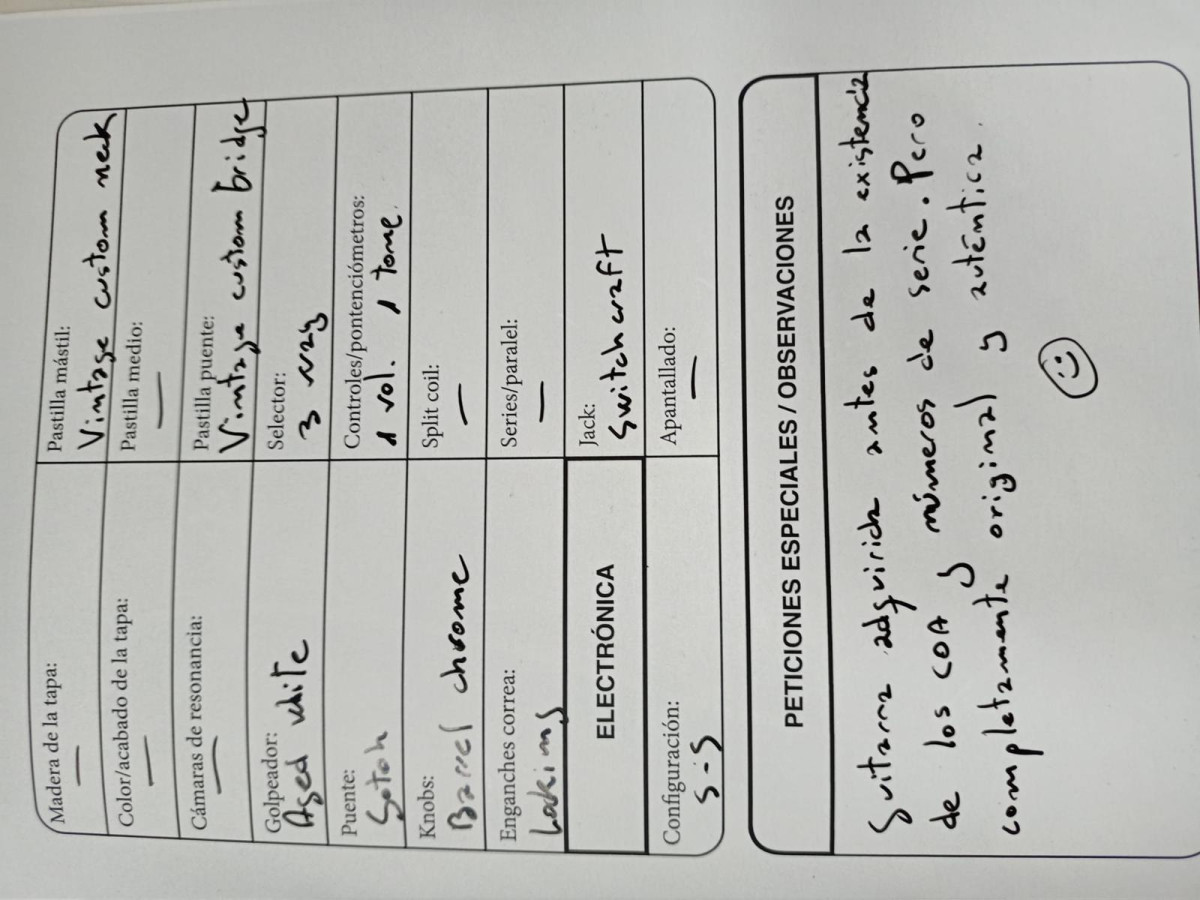 Madera de la tapa:
—
Pastilla mástil:
Vintage custom neck
Color/acabado de la tapa:
—
Pastilla medio:
—
Cámaras de resonancia:
—
Pastilla puente:
Vintage custom bridge
Golpeador:
Aged white
Selector:
3 way
Puente:
Gotoh
Controles/pontenciómetros:
1 vol. 1 tone.
Knobs:
Barrel chrome
Split coil:
—
Enganches correa:
Loking
Series/paralel:
—
ELECTRÓNICA
Jack:
Switchcraft
Configuración:
S-S
Apantallado:
—
PETICIONES ESPECIALES / OBSERVACIONES
Guitarra adquirida antes de la existencia
de los COA y números de serie. Pero
completamente original y auténtica.